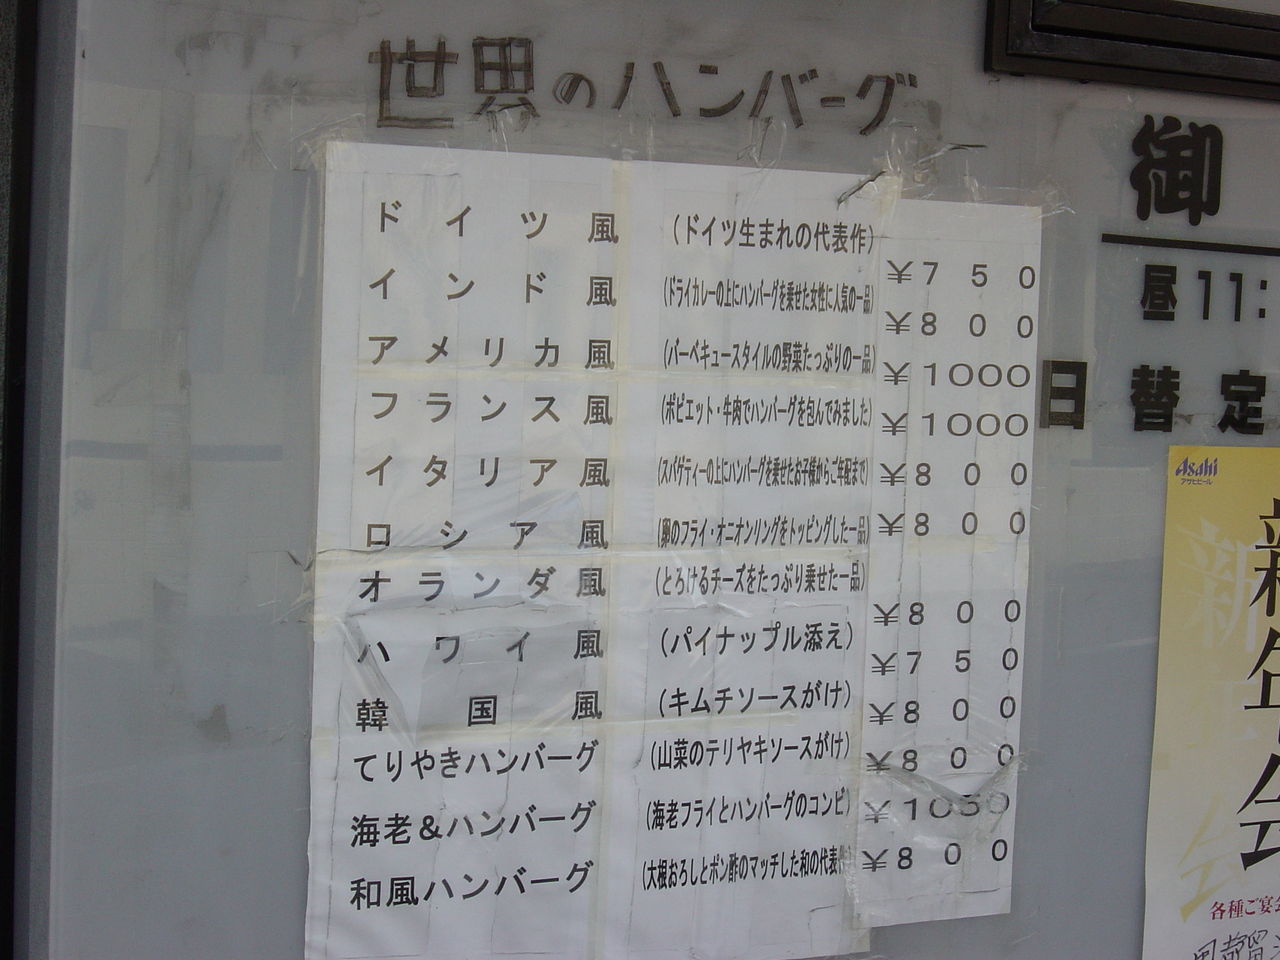 世界のハンバーグ
ドイツ風 (ドイツ生まれの代表作) ¥750
インド風 (ドライカレーの上にハンバーグを乗せた女性に人気の一品) ¥800
アメリカ風 (バーベキュースタイルの野菜たっぷりの一品) ¥1000
フランス風 (ポピエット・牛肉でハンバーグを包んでみました) ¥1000
イタリア風 (スパゲティーの上にハンバーグを乗せたお子様からご年配まで) ¥800
ロシア風 (卵のフライ・オニオンリングをトッピングした一品) ¥800
オランダ風 (とろけるチーズをたっぷり乗せた一品) ¥800
ハワイ風 (パイナップル添え) ¥750
韓国風 (キムチソースがけ) ¥800
てりやきハンバーグ (山菜のテリヤキソースがけ) ¥800
海老&ハンバーグ (海老フライとハンバーグのコンビ) ¥1050
和風ハンバーグ (大根おろしとポン酢のマッチした和の代表作 ¥800
御
昼11:
日替定
Asahi
アサヒビール
新年会
各種ご宴会